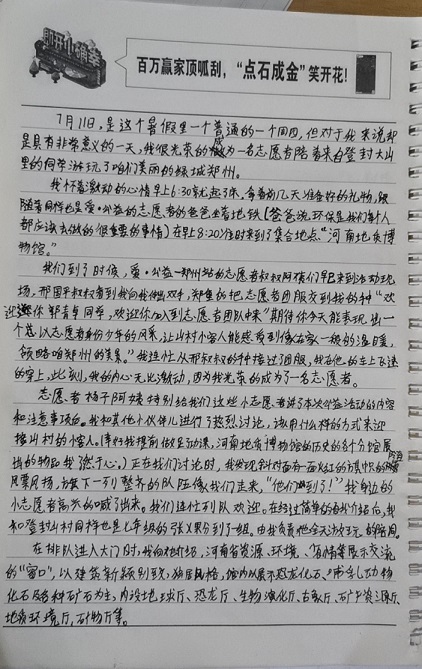 即开小确幸
百万赢家顶呱刮，“点石成金”笑开花！
7月11日，是这个暑假里一个普通的一个周四，但对于我来说却
是具有非常意义的一天，我很光荣的成为一名志愿者陪着来自登封大山
里的同学游玩了咱们美丽的绿城郑州。
我怀着激动的心情早上6:30就起了床，拿着前几天准备好的礼物，跟
随着同样也是爱·公益的志愿者的爸爸坐着地铁（爸爸说环保是我们每个人
都应该去做的很重要的事情）在早8:20准时来到了集合地点“河南地质博
物馆。”
我们到了时候，爱·公益—郑州站的志愿者叔叔阿姨们早已来到活动现
场，邢国平叔叔看到我向我伸出双手，郑重的把志愿者团服交到我的手中“欢
迎你 同学，欢迎你加入到志愿者团队中来”期待你今天能表现出一
个 以志愿者身份少年的风采，让山村小客人能感受到像在家一般的温暖，
领略咱郑州的美景。”我连忙从邢叔叔的手中接过团服，我在他的 上飞速
的穿上，此刻，我的内心无比激动，因为我光荣的成为了一名志愿者。
志愿者柚子阿姨特别给我们这些小志愿者讲了本次公益活动的内容
和注意事项。我和其他小伙伴儿进行了热烈讨论，该用什么样的方式来迎
接山村的小客人。（幸好我提前做足功课，河南地质博物馆的历史的各个分馆展
出的物品我了然于心。）正在我们讨论时，我发现斜对面有一面火红的旗帜
风飘扬，旗下一列整齐的队伍像我们走来，“他们 到了！”我身边的
小志愿者高兴的喊了出来。我们连忙列队欢迎。在经过简单的自我介绍后，我
和登封山村同样也是七年级的张 分到了一组。由我负责他全天游玩的陪同。
在排队进入大门时，我向他介绍，河南省资源、环境、 展示交流
的“窗口”，以建筑新颖别致，独居风格，馆内以展示恐龙化石、哺乳动物
化石及各种矿石为主，内设地球厅、恐龙厅、生物演化厅、古象厅、矿产资源厅、
地质环境厅，矿物厅等。